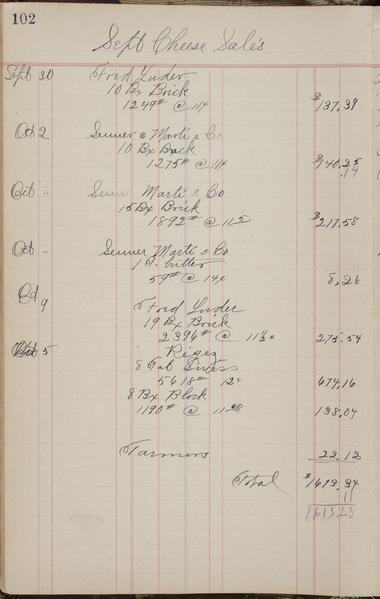 102
Sept Cheese Sale's
Sept 30 Fred Luder
10 Bx Brick
1249# @ 11¢ $137.39
Oct 2 Senner & Marti & Co
10 Bx Brick
1275# @ 11¢ $140.25
.14
Oct " Senn Marti & Co
15 Bx Brick
1892# @ 11.5 $217.58
Oct " Senner Marti & Co
butter
59# @ 14¢ 8.26
Oct 9 Fred Luder
19 Bx Brick
2396# @ 11½¢ 275.54
Oct 5 Regez
8 Tab Swiss
5618# 12¢ 674.16
8 Bx Block
1190# @ 138.04
Farmers 22.12
Total $1613.34
11
1613.23